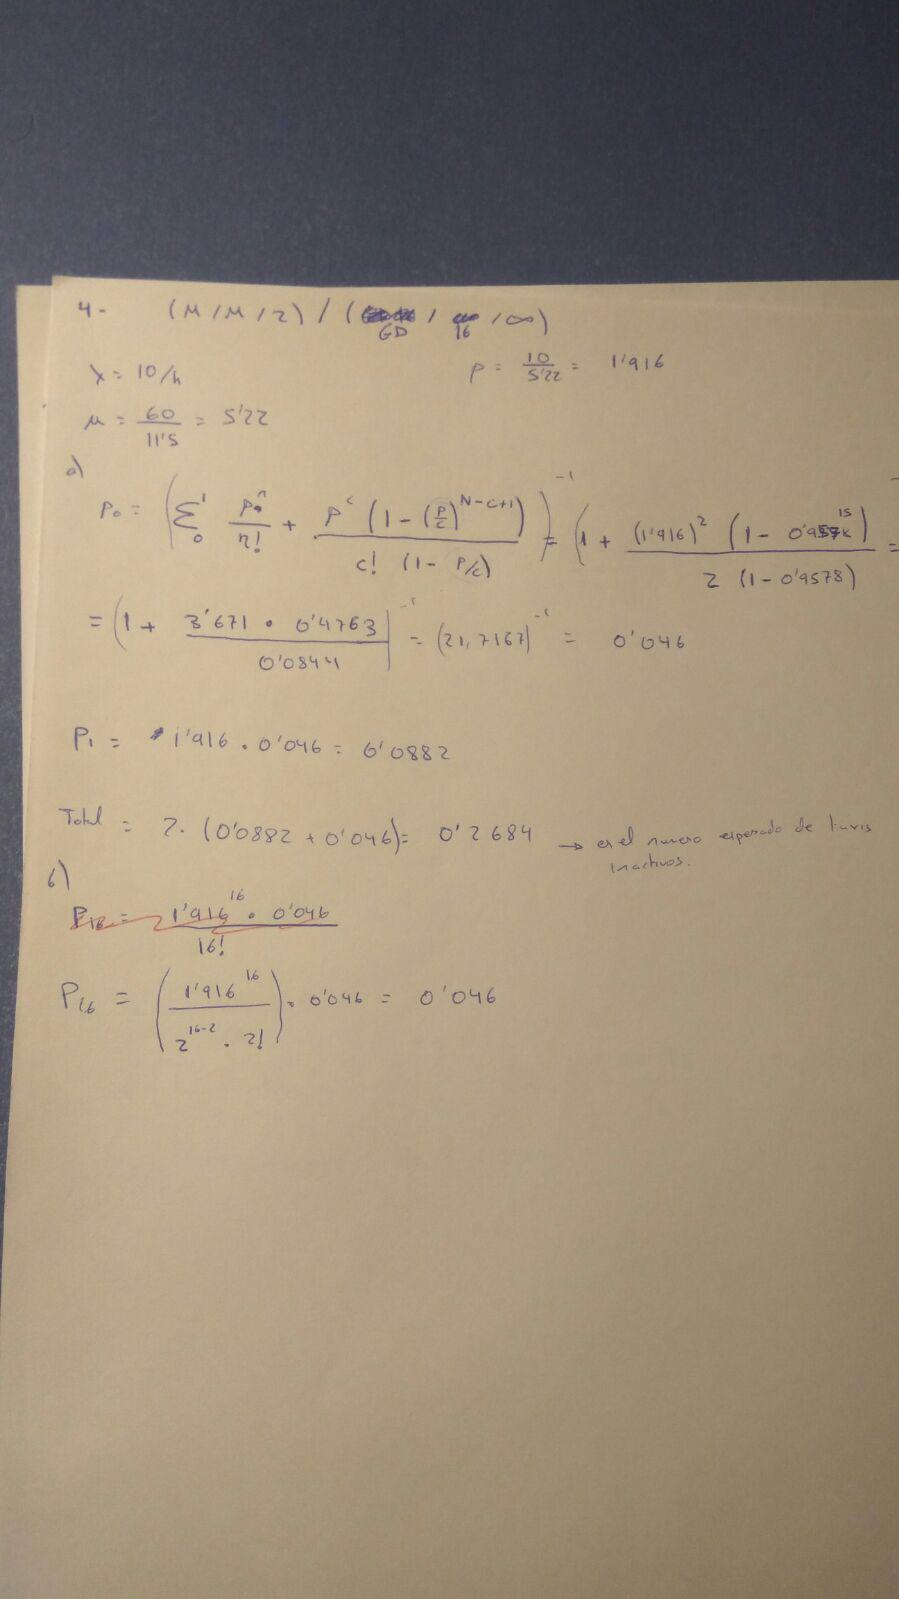 4- (M/M/2) / (GD / 16 / ∞)
λ = 10/h ρ = 10/5'22 = 1'916
μ = 60/11'5 = 5'22
a)
P₀ = (Σ₀¹ ρⁿ/n! + ρᶜ (1 - (ρ/c)^N-c+1) / c! (1 - ρ/c))⁻¹ = (1 + (1'916)² (1 - 0'9578¹⁵) / 2 (1 - 0'9578)) =
= (1 + 3'671 · 0'4763 / 0'0844)⁻¹ = (21,7167)⁻¹ = 0'046
P₁ = 1'916 · 0'046 = 0'0882
Total = 2 · (0'0882 + 0'046) = 0'2684 → es el numero esperado de
inactivos.
b)
P₁₆ = 1'916¹⁶ · 0'046 / 16!
P₁₆ = (1'916¹⁶ / 2¹⁶⁻² · 2!) · 0'046 = 0'046